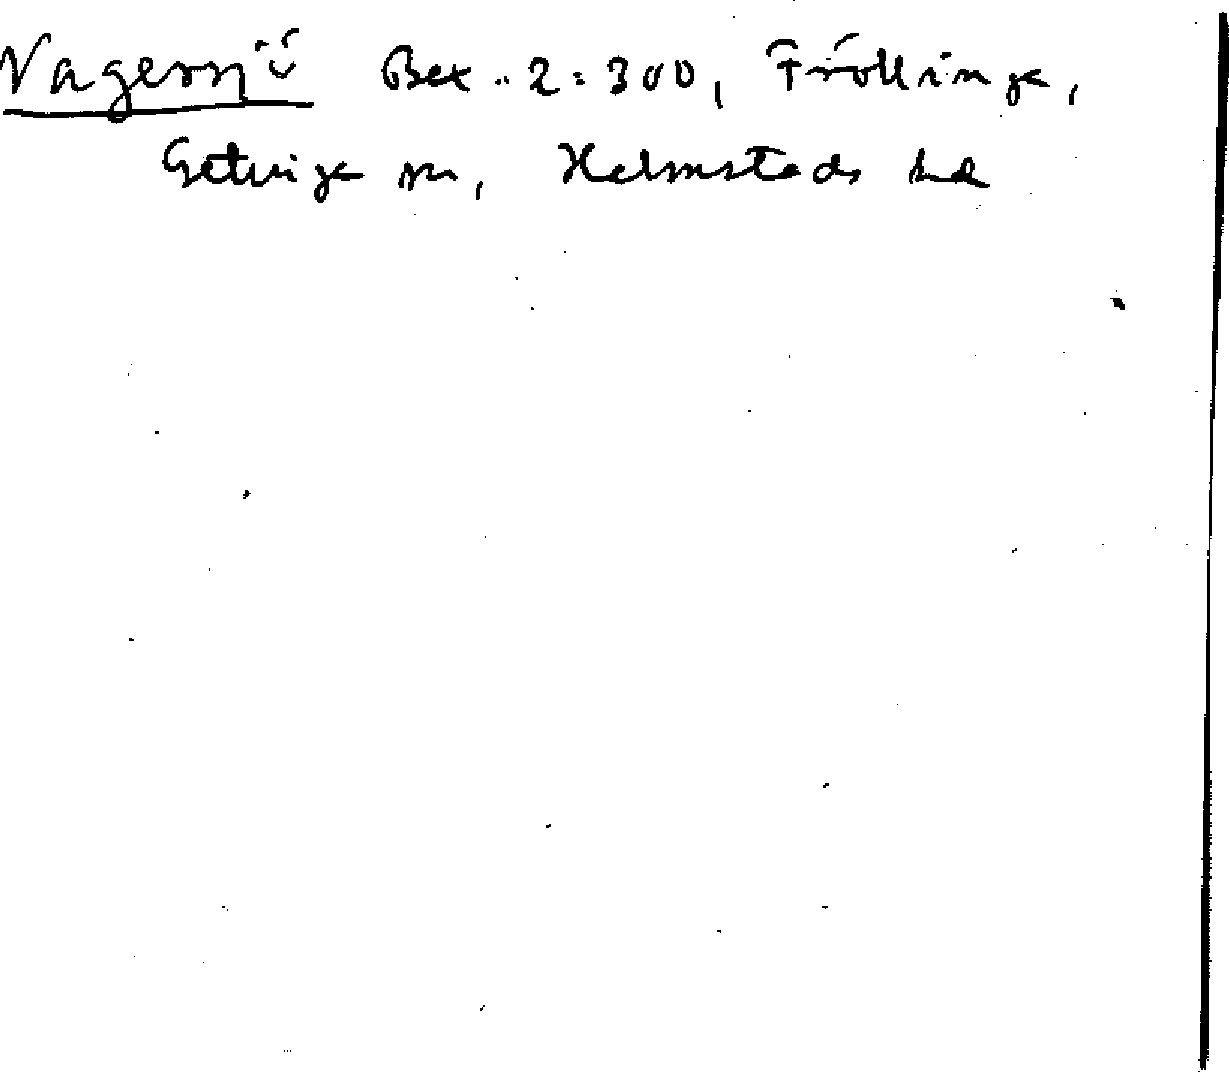 Vagersjö Bex. 2:300, Fröllinge,
Getinge sn, Halmstads hd